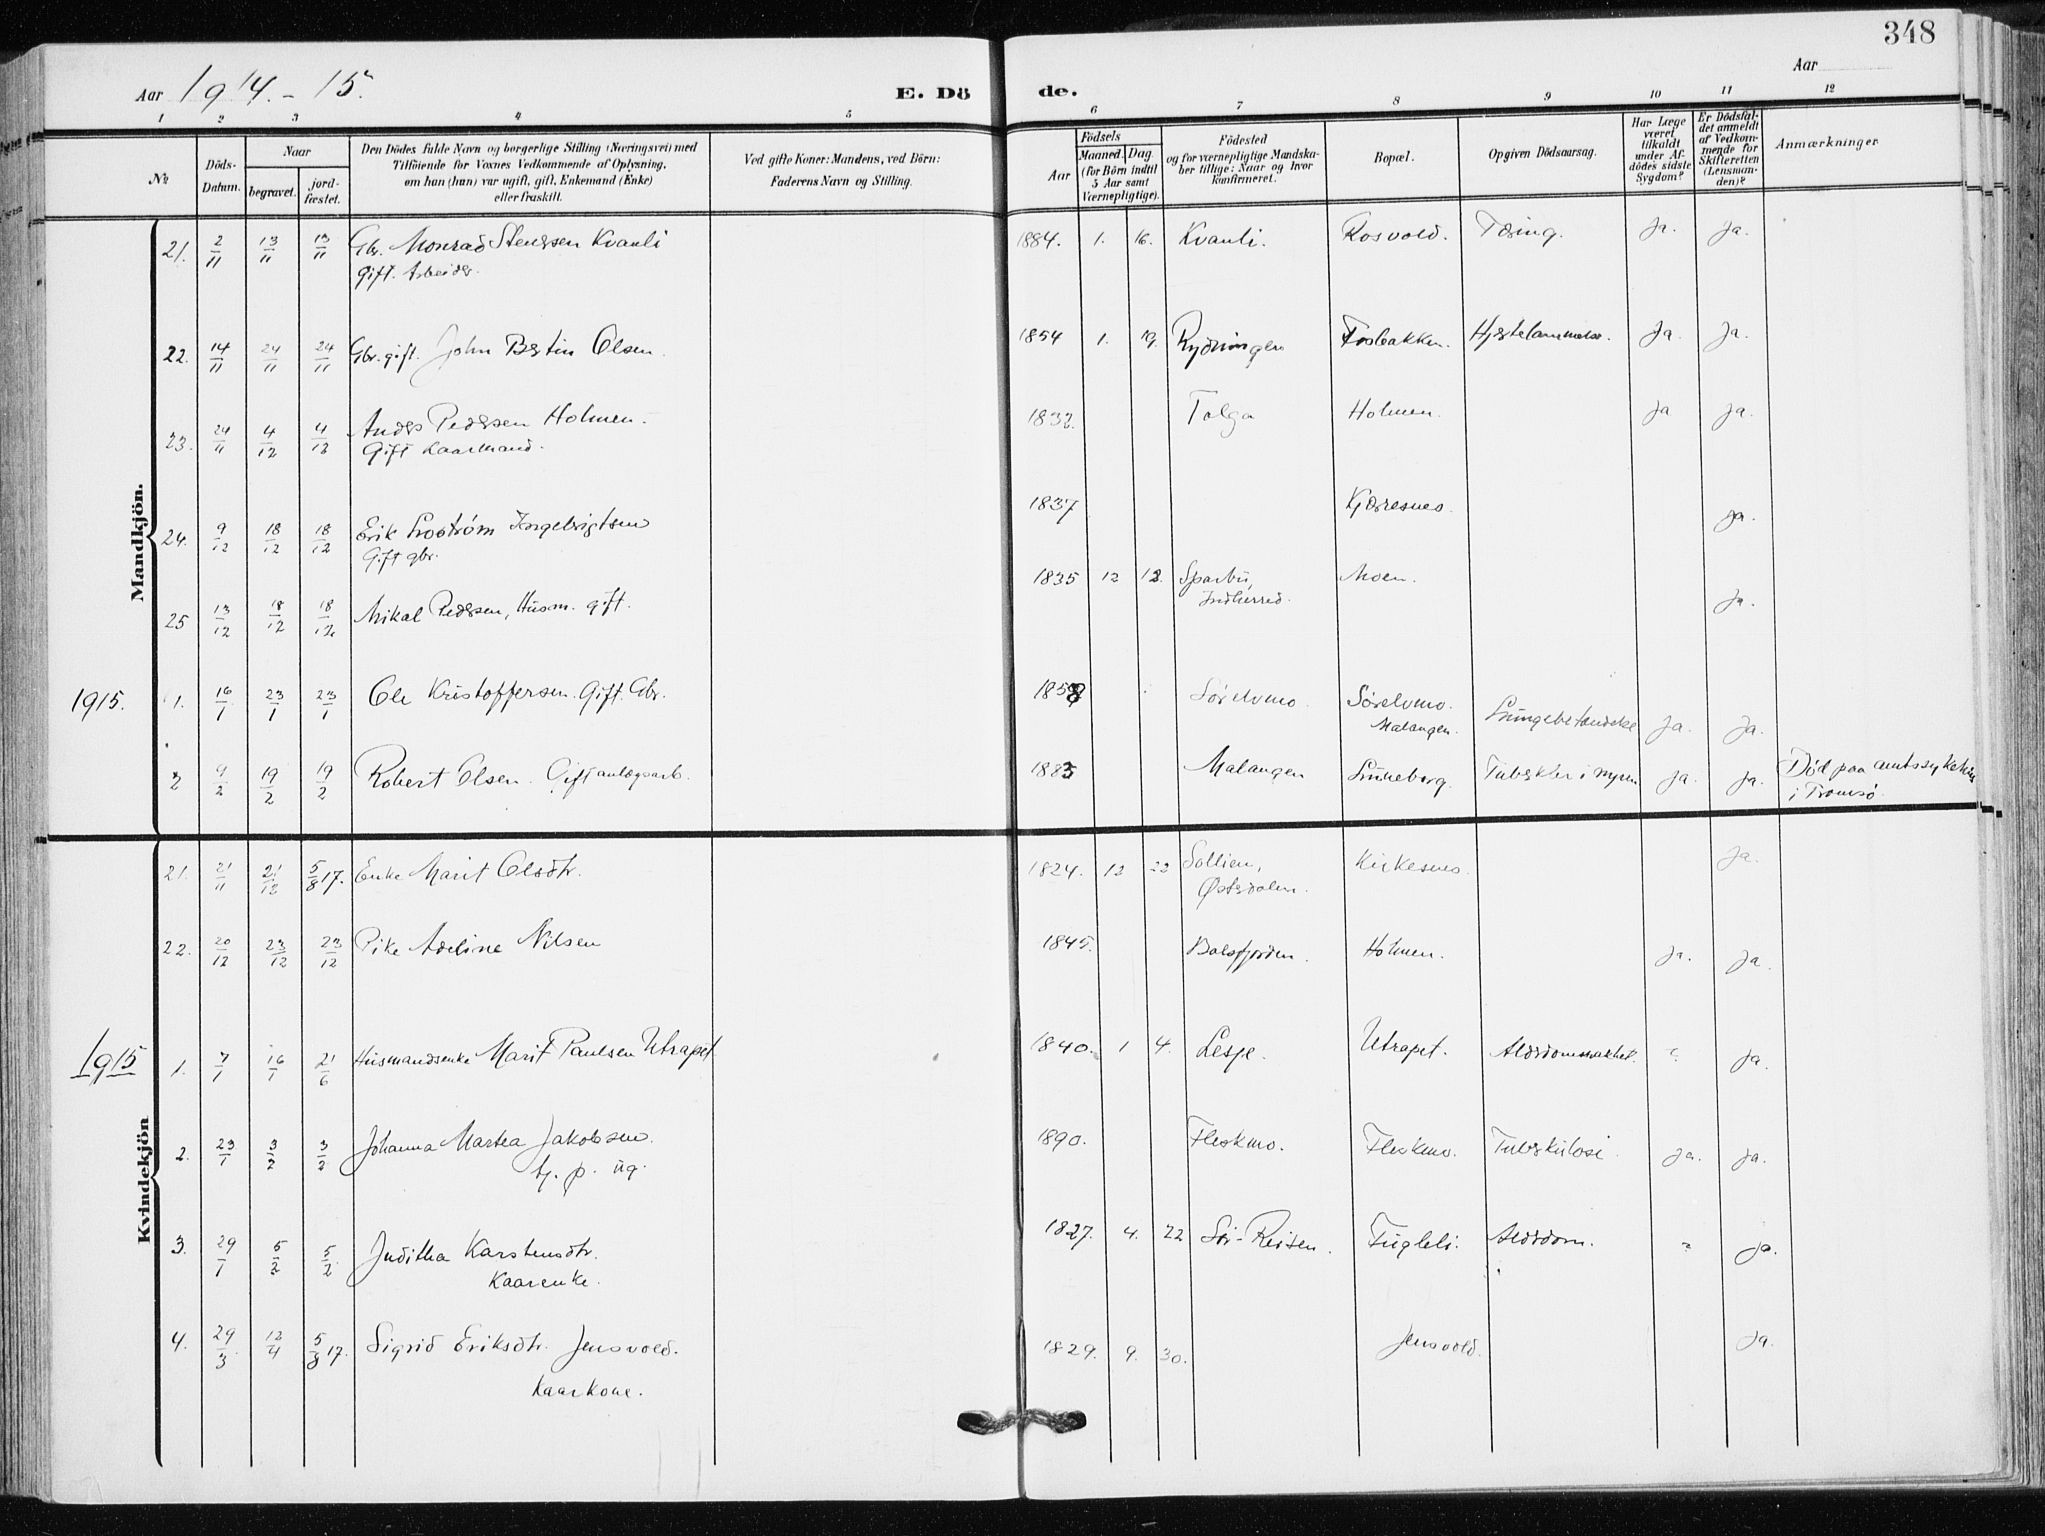 348
Aar 1914.-15.
E. Dö de.
Aar
1 2 3 4 5 6 7 8 9 10 11 12
No
Döds-Datum.
Naar
begravet.
jord-fæstet.
Den Dödes fulde Navn og borgerlige Stilling (Næringsvei) med
Tilföiende for Voxnes Vedkommende af Oplysning,
om han (hun) var ugift, gift, Enkemand (Enke)
eller fraskilt.
Ved gifte Koner: Mandens, ved Börn:
Faderens Navn og Stilling.
Födsels
Aar
Maaned. Dag.
(for Börn indtil
5 Aar samt
Værnepligtige).
Födested
og for værnepligtige Mandska-
ber tillige: Naar og hvor
konfirmeret.
Bopæl.
Opgiven Dödsaarsag.
Har Læge
været
tilkaldt
under Af-
dödes sidste
Sygdom?
Er Dödsfal-
det anmeldt
af Vedkom-
mende for
Skifteretten
(Lensman-
den)?
Anmærkninger.
Mandkjön.
21. 2/11 13/11 13/11 Gbr. Monrad Stenersen Kvanli 1884. 1. 16. Kvanli. Rosvold. Tæring. Ja. Ja.
Gift. Arbeider.
22. 14/11 24/11 24/11 Gbr. gift. John Bertin Olsen. 1854 1. 19. Rydningen Fosbakken. Hjertelammelse. Ja. Ja.
23. 24/11 4/12 4/12 Anders Pedersen Holmen. 1832. Tolga Holmen. Ja Ja.
Gift Kaarmand.
24. 9/12 18/12 18/12 Erik Ingebrigtsen 1837 Kjærresnes. Ja.
Gift gbr.
25 13/12 18/12 18/12 Mikal Pedersen, Husm. gift. 1835 12 12. Sparbu, Moen. Ja.
Indherred.
1915. 1. 16/1 23/1 23/1 Ole Kristoffersen. Gift. Gbr. 1858 Sørelvmo. Sørelvmo. Lungebetændelse Ja. Ja.
Malangen.
2 9/2 19/2 19/2 Robert Olsen. Gift anlægsarb. 1883 Malangen Lunneborg. Tuberkler i nyren Ja. Ja. Død paa amtssykehus
i Tromsø.
Kvindekjön
21. 21/11 21/12 5/8 17. Enke Marit Olsdtr. 1824. 12 22 Sollien, Kirkesnes. Ja.
Østerdalen.
22. 20/12 23/12 23/12 Pike Adeline Nilsen 1845. Balsfjorden. Holmen. Ja. Ja.
1915 1. 7/1 16/1 21/6 Husmandsenke Marit Paulsen Utrapet 1840. 1 4. Lesje. Utrapet. Alderdomssvakhet. Ja.
2. 23/1 3/2 3/2 Johanna Martea Jakobsen. 1890. Fleskmo. Fleskmo. Tuberkulose. Ja. Ja.
tj. p. ug.
3. 29/1 5/2 5/2 Juditha Karstensdtr. 1827. 4. 22 Sør-Reisen. Fugleli. Alderdom. " Ja.
Kaarenke.
4. 29/3 12/4 5/8 17. Sigrid Eriksdtr. Jensvold. 1829. 9. 30. Jensvold. Ja.
Kaarkone.